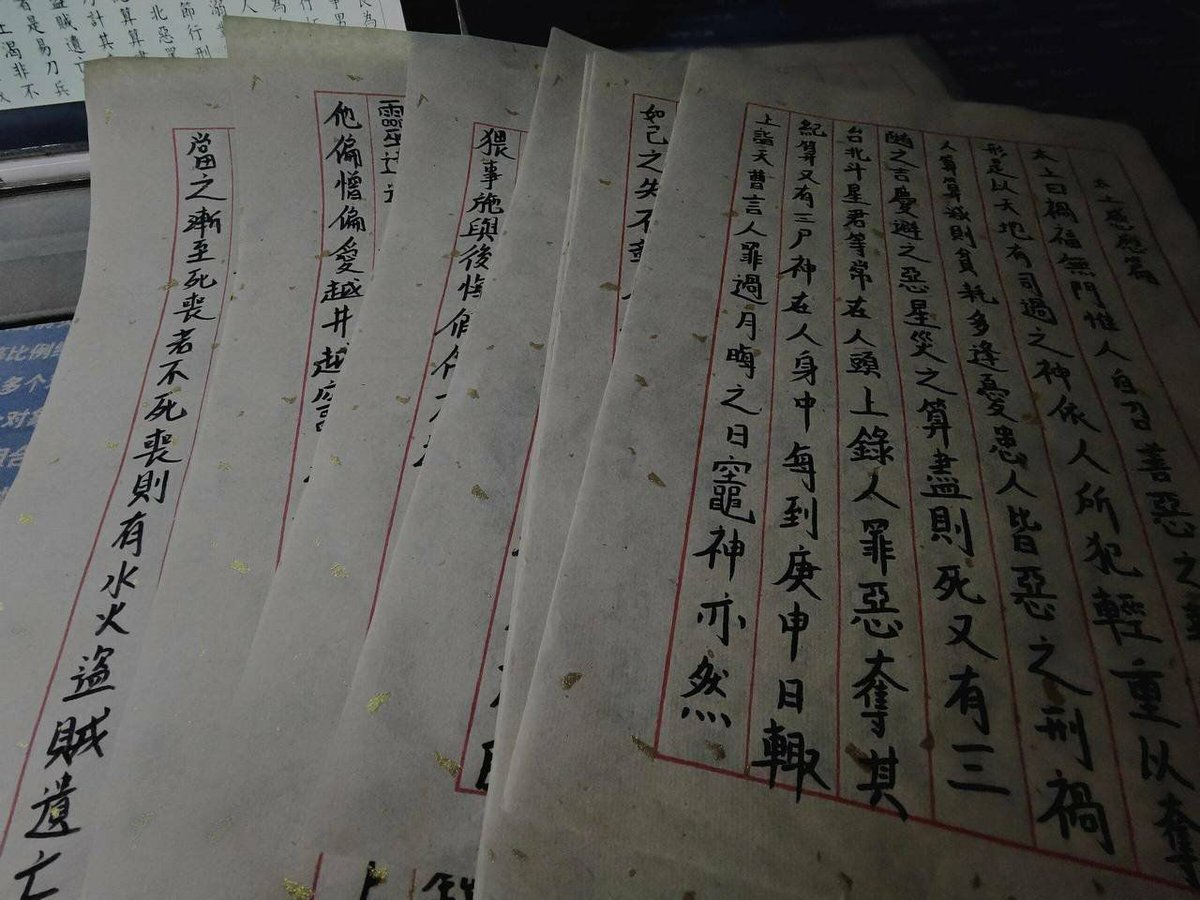 太上感應篇
太上曰禍福無門惟人自召善惡之
形是以天地有司過之神依人所犯輕重以奪
人算算減則貧耗多逢憂患人皆惡之刑禍
隨之吉慶避之惡星災之算盡則死又有三
台北斗星君等常在人頭上錄人罪惡奪其
紀算又有三尸神在人身中每到庚申日輒
上詣天曹言人罪過月晦之日竈神亦然
如己之失不
猥事施與後悔假
他偏憎偏愛越井越
當之漸至死喪若不死喪則有水火盜賊遺亡
節行
北惡罪
賊遺亡
是易刀兵
渴非不
比例
多个
对象